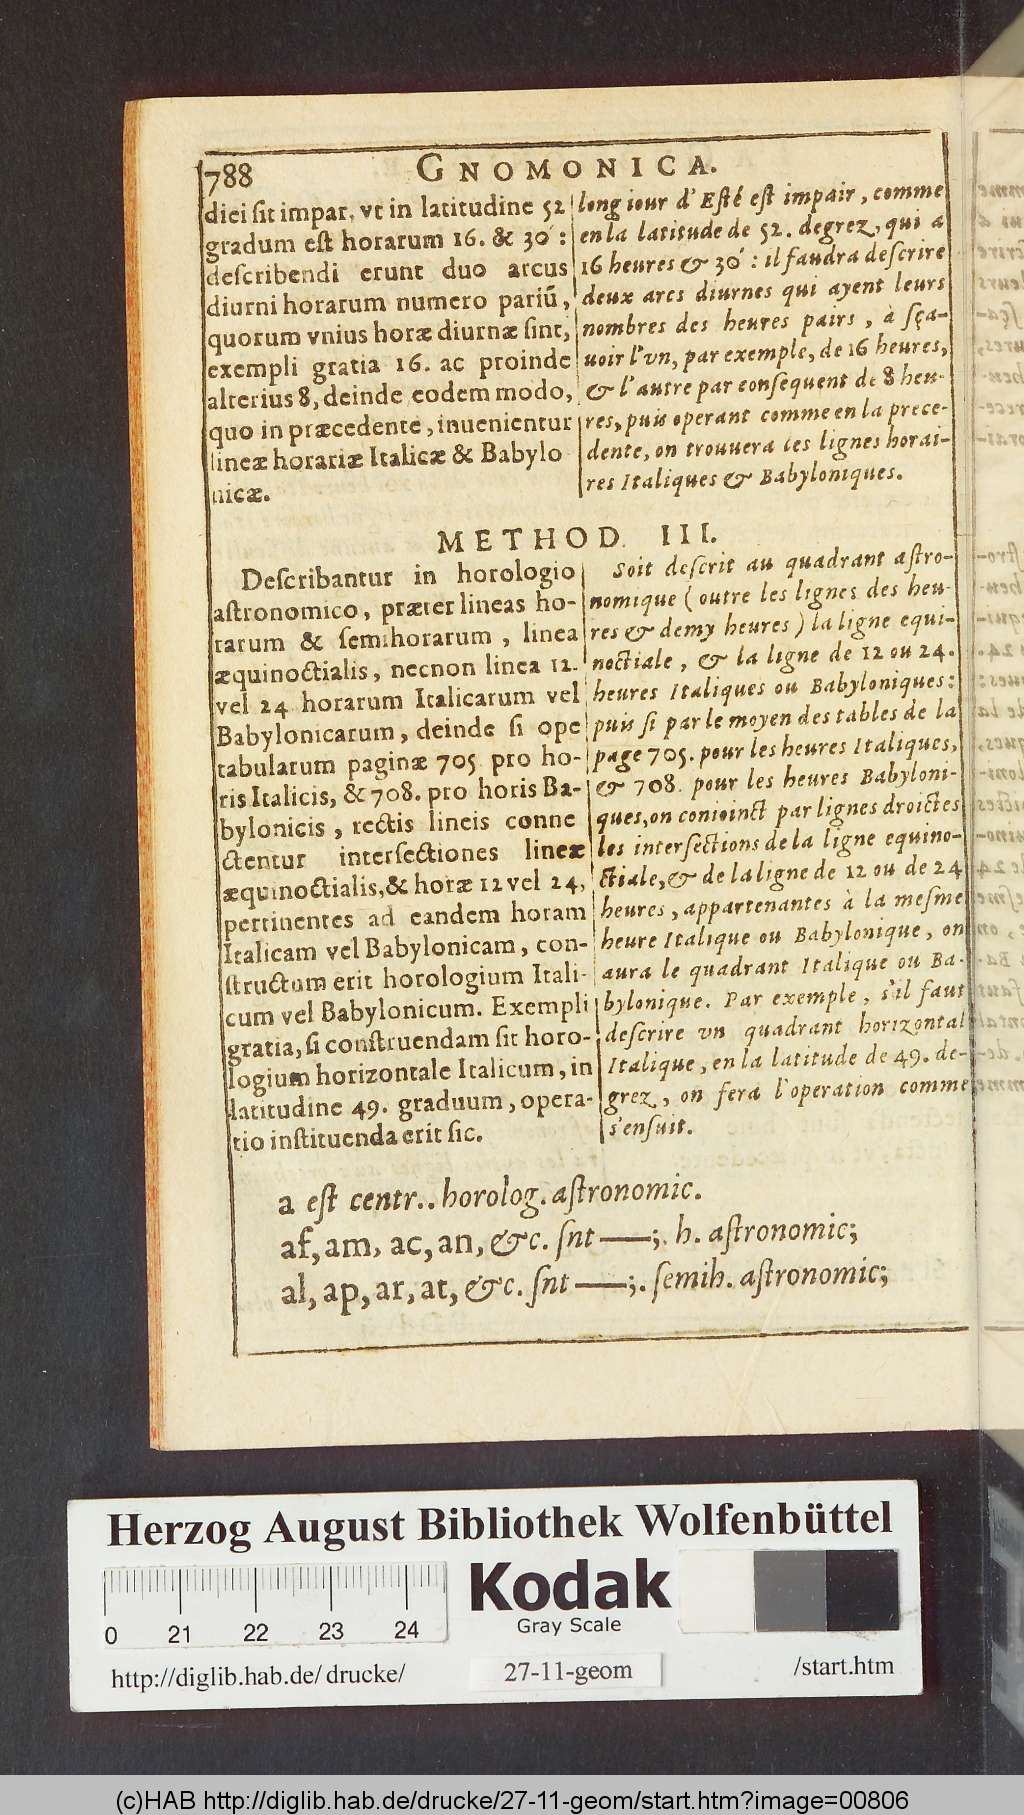 788
GNOMONICA.
diei sit impar, vt in latitudine 52
gradum est horarum 16. & 30′ :
describendi erunt duo arcus
diurni horarum numero pariū,
quorum vnius horæ diurnæ sint,
exempli gratia 16. ac proinde
alterius 8, deinde eodem modo,
quo in præcedente, inuenientur
lineæ horariæ Italicæ & Babylo
nicæ.
long iour d'Esté est impair, comme
en la latitude de 52. degrez, qui a
16 heures & 30′ : il faudra descrire
deux arcs diurnes qui ayent leurs
nombres des heures pairs, à sça-
uoir l'vn, par exemple, de 16 heures,
& l'autre par consequent de 8 heu-
res, puis operant comme en la prece-
dente, on trouuera les lignes horai-
res Italiques & Babyloniques.
METHOD. III.
Describantur in horologio
astronomico, præter lineas ho-
rarum & semihorarum, linea
æquinoctialis, necnon linea 12.
vel 24 horarum Italicarum vel
Babylonicarum, deinde si ope
tabularum paginæ 705 pro ho-
ris Italicis, & 708. pro horis Ba-
bylonicis, rectis lineis conne
ctentur intersectiones lineæ
æquinoctialis, & horæ 12 vel 24,
pertinentes ad eandem horam
Italicam vel Babylonicam, con-
structum erit horologium Itali-
cum vel Babylonicum. Exempli
gratia, si construendam sit horo-
logium horizontale Italicum, in
latitudine 49. graduum, opera-
tio instituenda erit sic.
Soit descrit au quadrant astro-
nomique (outre les lignes des heu-
res & demy heures) la ligne equi-
noctiale, & la ligne de 12 ou 24.
heures Italiques ou Babyloniques:
puis si par le moyen des tables de la
page 705. pour les heures Italiques,
& 708. pour les heures Babyloni-
ques, on conioinct par lignes droictes
les intersections de la ligne equino-
ctiale, & de la ligne de 12 ou de 24
heures, appartenantes à la mesme
heure Italique ou Babylonique, on
aura le quadrant Italique ou Ba-
bylonique. Par exemple, s'il faut
descrire vn quadrant horizontal
Italique, en la latitude de 49. de-
grez, on fera l'operation comme
s'ensuit.
a est centr.. horolog. astronomic.
af, am, ac, an, &c. snt —;. h. astronomic;
al, ap, ar, at, &c. snt —;. semih. astronomic;
Herzog August Bibliothek Wolfenbüttel
0 21 22 23 24
Kodak
Gray Scale
http://diglib.hab.de/ drucke/
27-11-geom
/start.htm
(c)HAB http://diglib.hab.de/drucke/27-11-geom/start.htm?image=00806